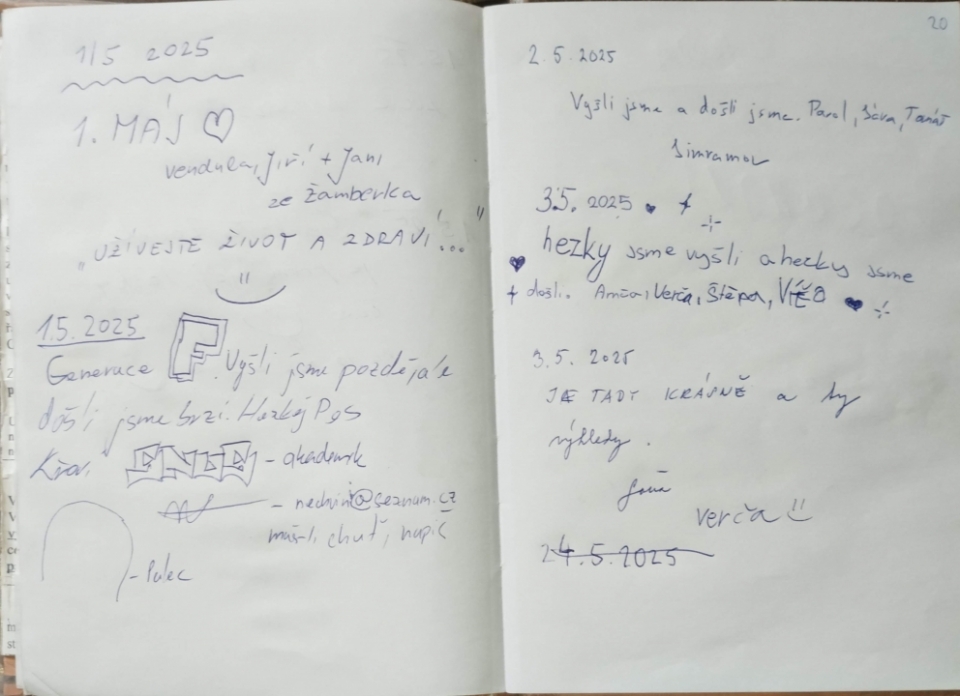 1/5 2025
1. MÁJ ♡
Vendula, Jiří + Jani
ze Žamberka
„UŽÍVEJTE ŽIVOT A ZDRAVÍ..."
1.5. 2025
Generace F. Vyšli jsme pozdě, ale
došli jsme brzi. Hezkej
- akademik
@seznam.cz
máš-li chuť, napiš
- Palec
20
2. 5. 2025
Vyšli jsme a došli jsme. Pavel, Sára, Tomáš
3.5. 2025
hezky jsme vyšli a hezky jsme
došli. Verča, Štěpán,
3. 5. 2025
JE TADY KRÁSNĚ a ty
výhledy.
Verča
24.5.2025